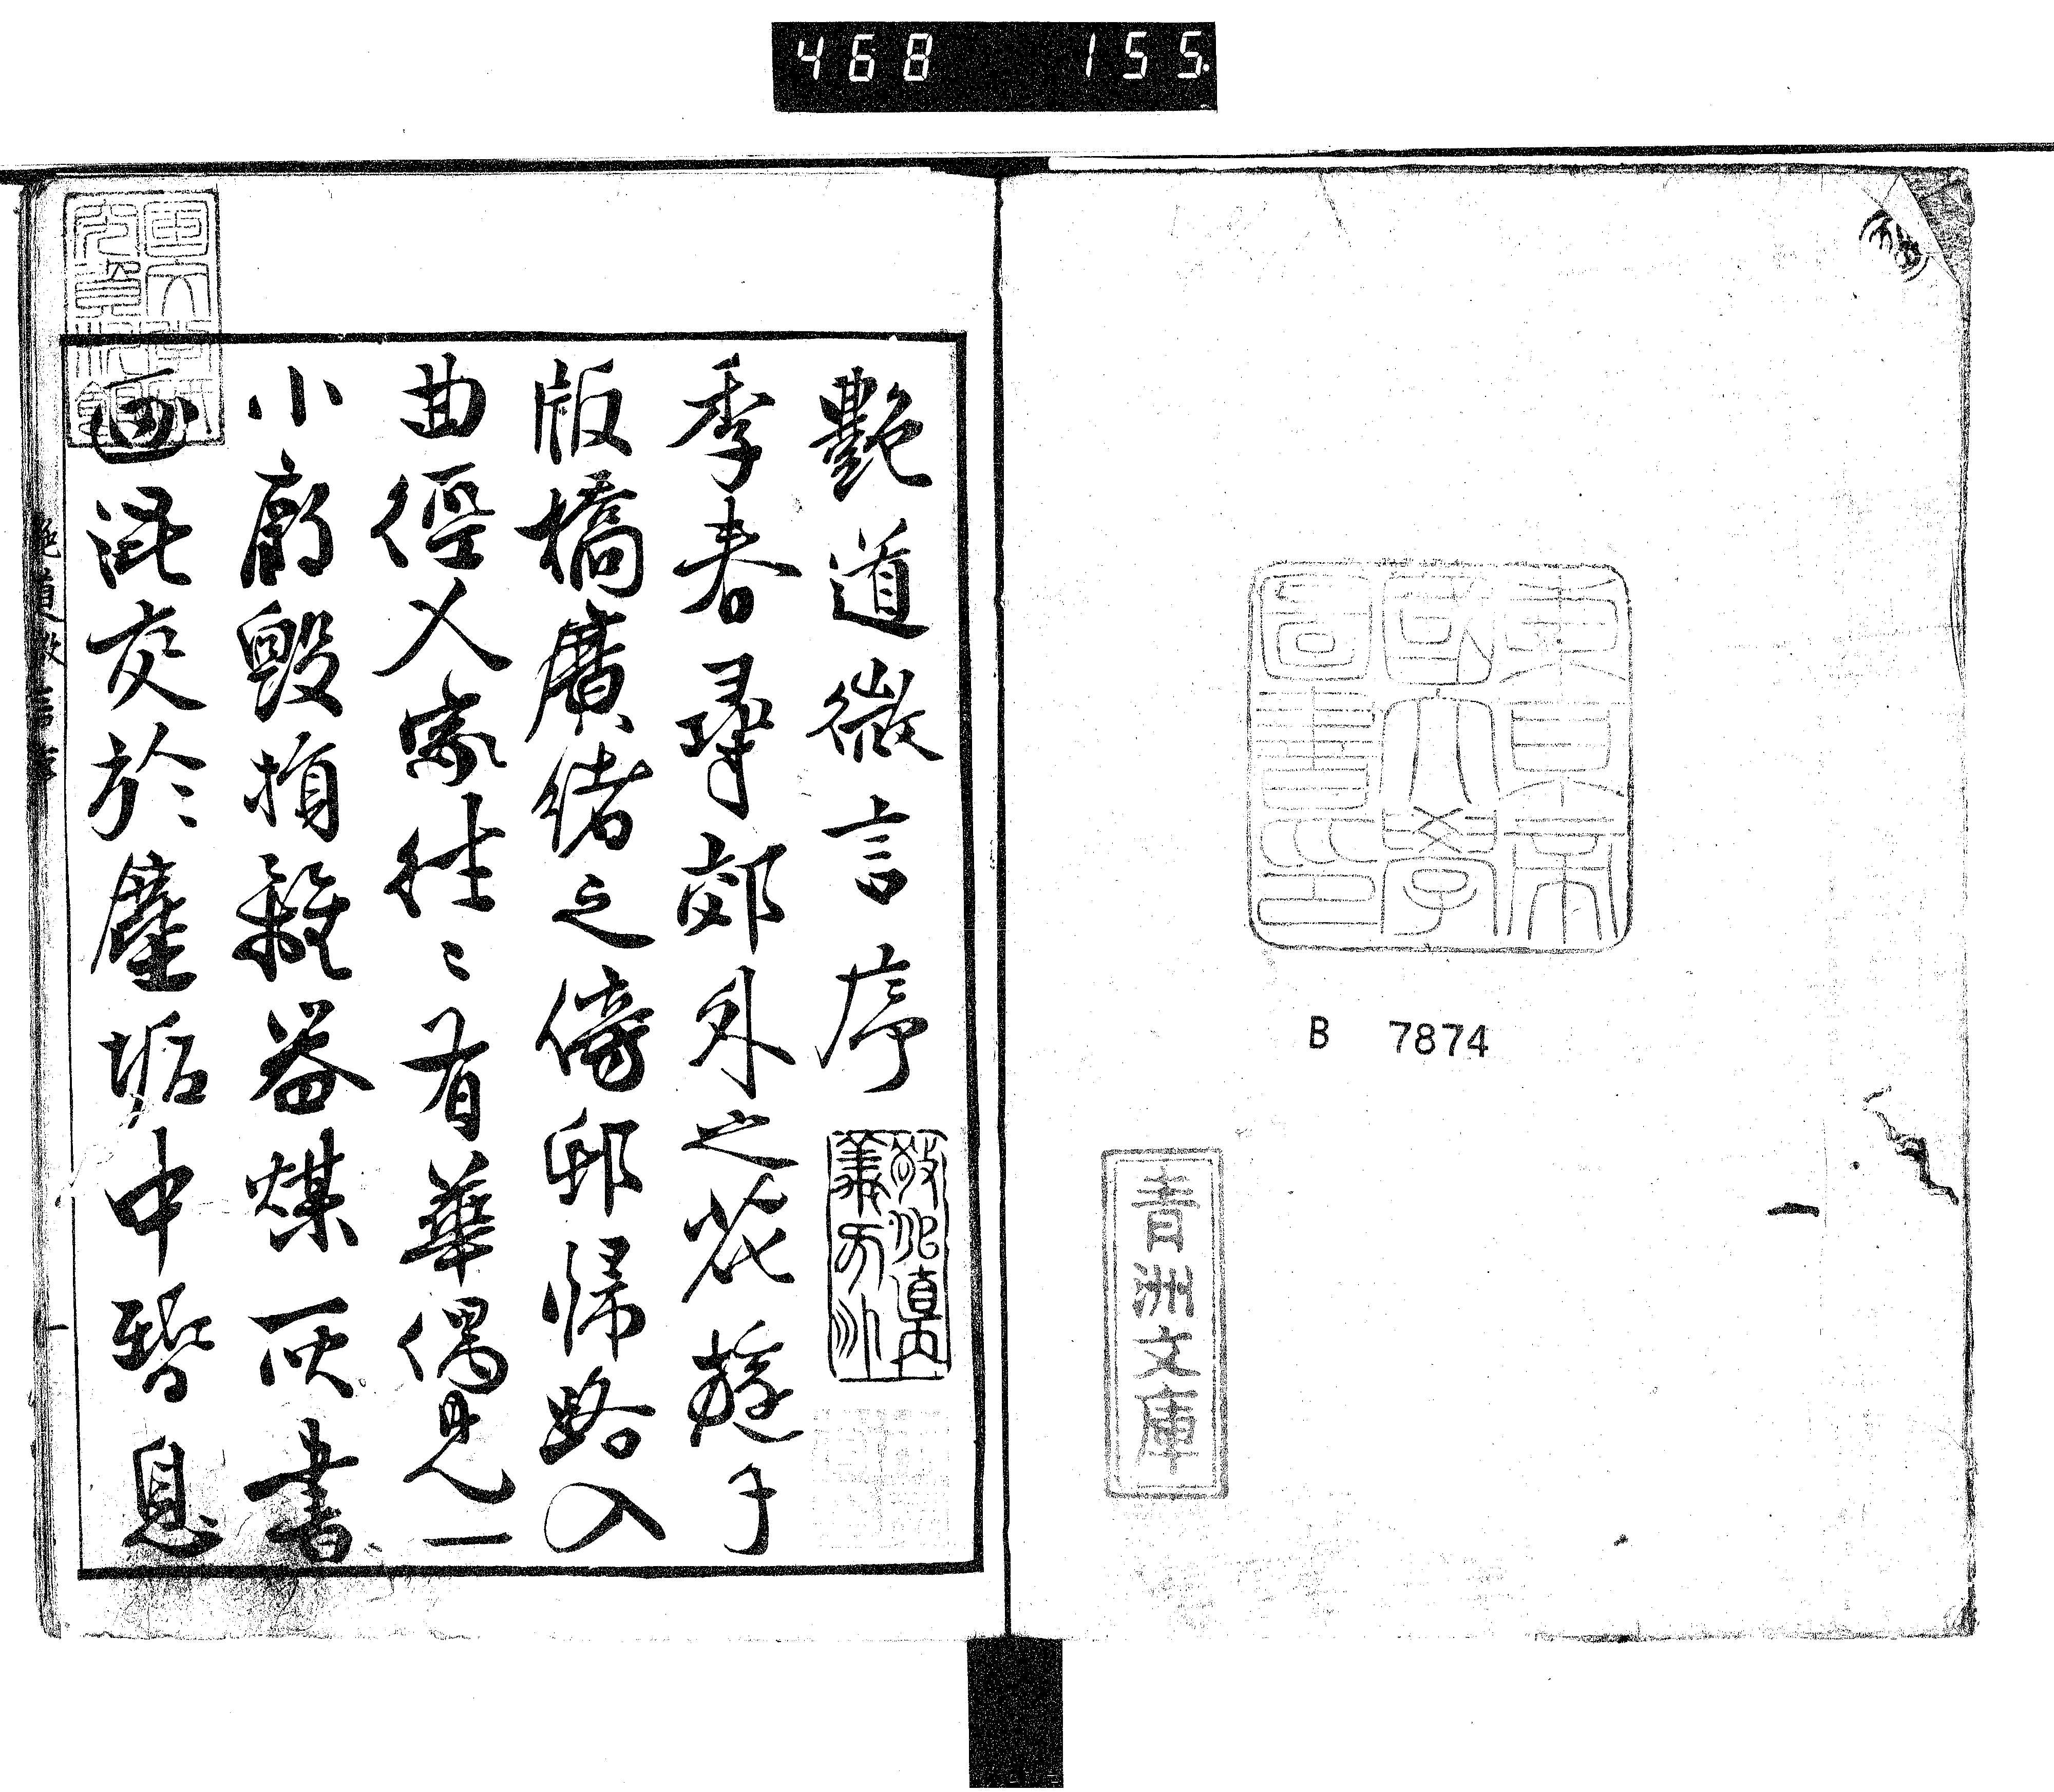 468 155
東京帝
國大學
圖書印
B 7874
青洲文庫
艷道微言序
季春尋郊外之花遊于
版橋廣緒之傍邸帰路入
曲徑人家往〻有華偶見一
小廚毀損雜器煤灰書
画混交於塵垢中暫息